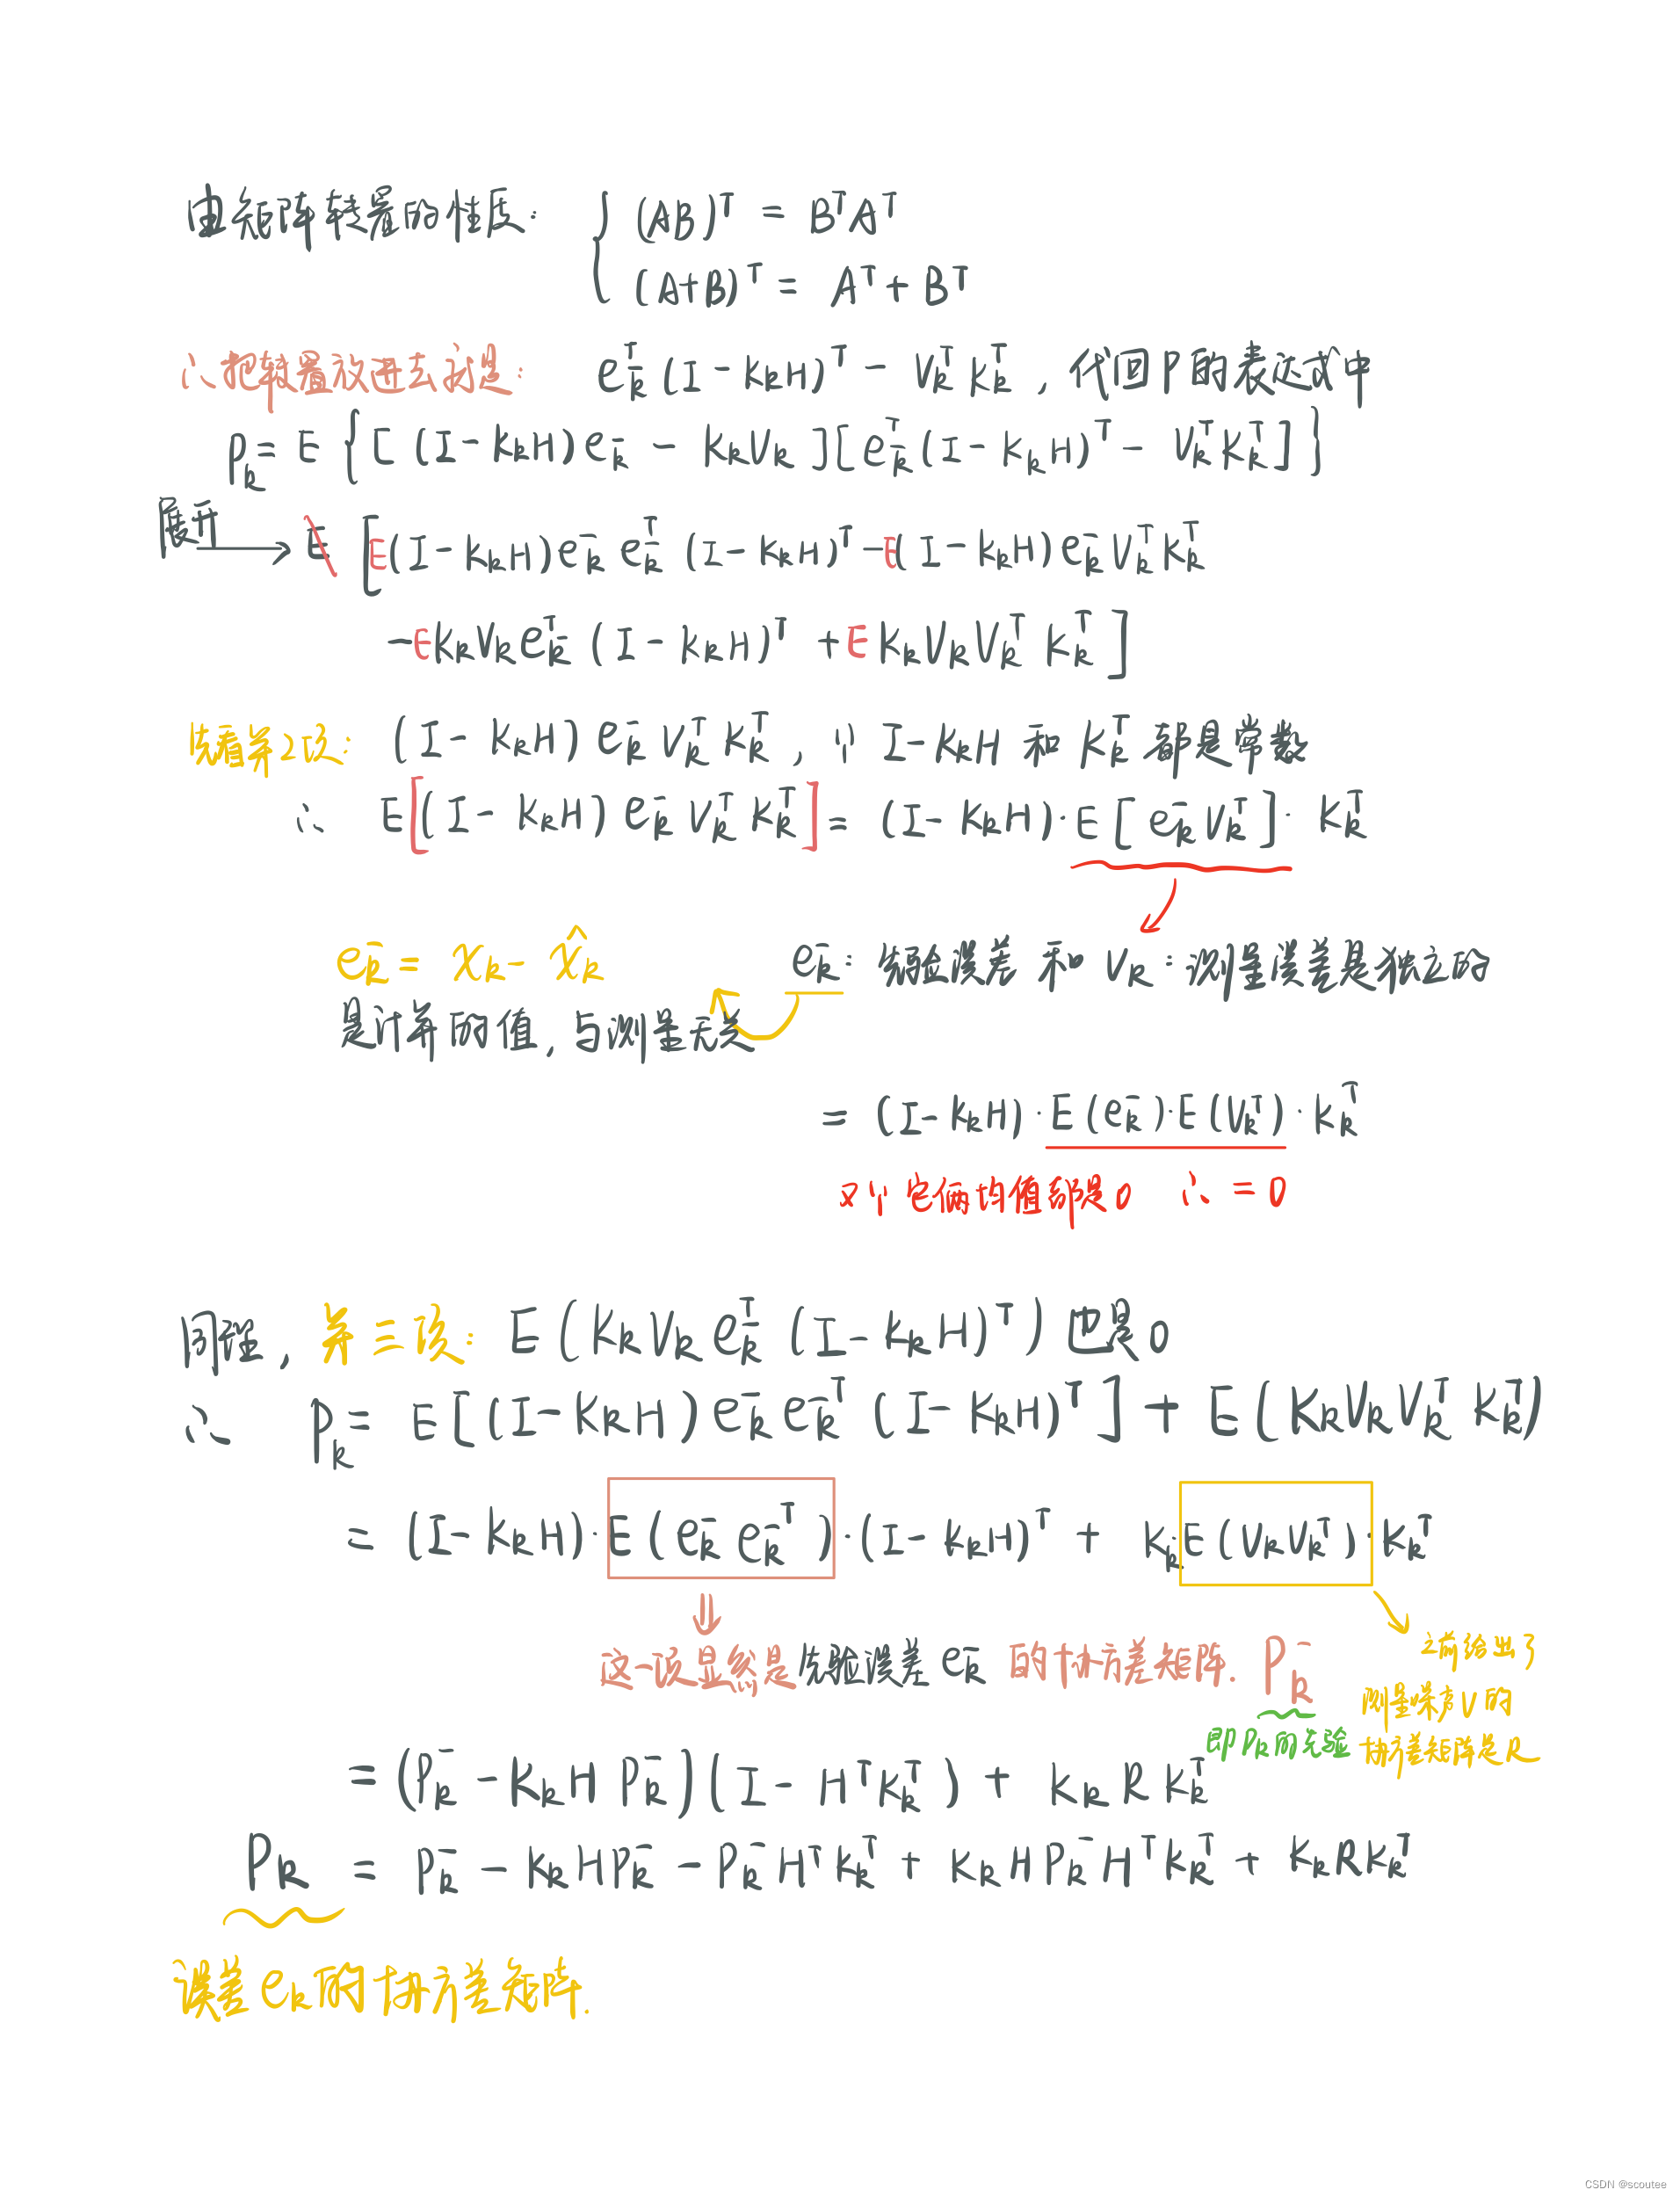 由矩阵转置的性质: { (AB)ᵀ = BᵀAᵀ
(A+B)ᵀ = Aᵀ + Bᵀ
∴把转置放进去就是: e_k⁻ᵀ (I - K_kH)ᵀ - V_kᵀ K_kᵀ , 代回P的表达式中
P_k = E { [ (I - K_kH) e_k⁻ - K_kV_k ][ e_k⁻ᵀ (I - K_kH)ᵀ - V_kᵀ K_kᵀ ] }
展开 → E [ E (I - K_kH) e_k⁻ e_k⁻ᵀ (I - K_kH)ᵀ - E (I - K_kH) e_k⁻ V_kᵀ K_kᵀ
- E K_k V_k e_k⁻ᵀ (I - K_kH)ᵀ + E K_k V_k V_kᵀ K_kᵀ ]
先看第2项: (I - K_kH) e_k⁻ V_kᵀ K_kᵀ , ∵ I - K_kH 和 K_kᵀ 都是常数
∴ E [ (I - K_kH) e_k⁻ V_kᵀ K_kᵀ ] = (I - K_kH) · E [ e_k⁻ V_kᵀ ] · K_kᵀ
e_k⁻ = x_k - x̂_k⁻ e_k⁻: 先验误差 和 V_k: 测量误差是独立的
是计算的值, 与测量无关
= (I - K_kH) · E (e_k⁻) · E (V_kᵀ) · K_kᵀ
又∵它俩均值都是0 ∴ = 0
同理, 第三项: E (K_k V_k e_k⁻ᵀ (I - K_kH)ᵀ) 也是0
∴ P_k = E [ (I - K_kH) e_k⁻ e_k⁻ᵀ (I - K_kH)ᵀ ] + E (K_k V_k V_kᵀ K_kᵀ)
= (I - K_kH) · E (e_k⁻ e_k⁻ᵀ) · (I - K_kH)ᵀ + K_k E (V_k V_kᵀ) · K_kᵀ
这一项显然是先验误差 e_k⁻ 的协方差矩阵. P_k⁻
即P_k的先验
之前给出了
测量噪声V的
协方差矩阵是R
= (P_k⁻ - K_k H P_k⁻) (I - Hᵀ K_kᵀ) + K_k R K_kᵀ
P_k = P_k⁻ - K_k H P_k⁻ - P_k⁻ Hᵀ K_kᵀ + K_k H P_k⁻ Hᵀ K_kᵀ + K_k R K_kᵀ
误差 e_k 的协方差矩阵.
CSDN @scoutee